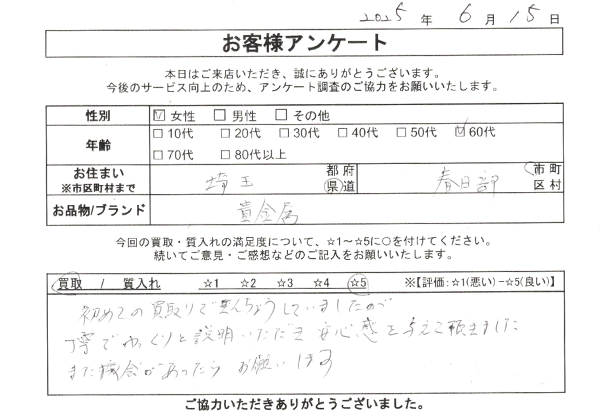 2025 年 6 月 15 日
お客様アンケート
本日はご来店いただき、誠にありがとうございます。
今後のサービス向上のため、アンケート調査のご協力をお願いいたします。
性別 ☑ 女性 □ 男性 □ その他
年齢 □ 10代 □ 20代 □ 30代 □ 40代 □ 50代 ☑ 60代
□ 70代 □ 80代以上
お住まい ※市区町村まで 埼玉 都府県道 春日部 市町区村
お品物/ブランド 貴金属
今回の買取・質入れの満足度について、☆1～☆5に○を付けてください。
続いてご意見・ご感想などのご記入をお願いいたします。
買取 / 質入れ ☆1 ☆2 ☆3 ☆4 ☆5 ※【評価:☆1(悪い)-☆5(良い)】
初めての買取りできんちょうしていましたので
丁寧でゆっくりと説明いただき 安心感を与えて頂きました
また機会があったら お願いします
ご協力いただきありがとうございました。